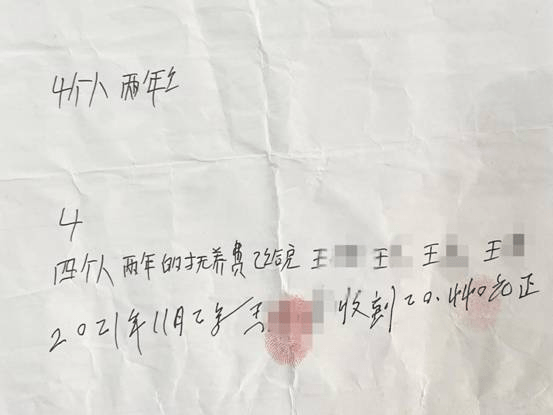 4个人 两年
4
四个人 两年的抚养费已结完 王 王 王 王
2021年11月 收到 20.440元正